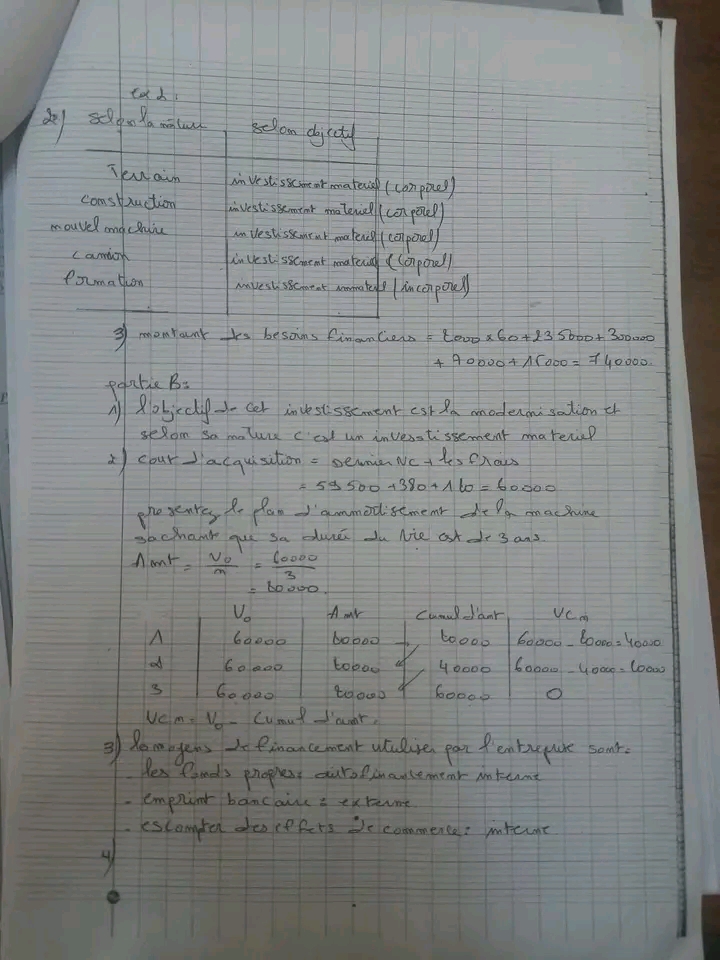 ex 2.
2°/ selon la nature | selon objectif
Terrain | investissement materiel (corporel)
construction | investissement materiel (corporel)
nouvel machine | investissement materiel (corporel)
camion | investissement materiel (corporel)
formation | investissement immateriel (incorporel)
3) montant des besoins financiers = 2000 x 60 + 235000 + 300000
+ 70000 + 15000 = 740000
partie B:
1) l'objectif de cet investissement est la modernisation et
selon sa nature c'est un invesstissement materiel
2) cout d'acquisition = dernier NC + les frais
= 59500 + 380 + 120 = 60000
presentez le plan d'ammortisement de la machine
sachant que sa durée du vie est de 3 ans.
Amt = V0/n = 60000/3
= 20000.
V0 | Amt | Cumul d'amt | VCn
1 | 60000 | 20000 | 20000 | 60000 - 20000 = 40000
2 | 60000 | 20000 | 40000 | 60000 - 40000 = 20000
3 | 60000 | 20000 | 60000 | 0
VCn = V0 - Cumul d'amt.
3) les moyens de financement utiliser par l'entreprise sont:
- les fonds propres: autofinancement interne
- emprint bancaire: externe
- escompter des effets de commerce: interne
4)